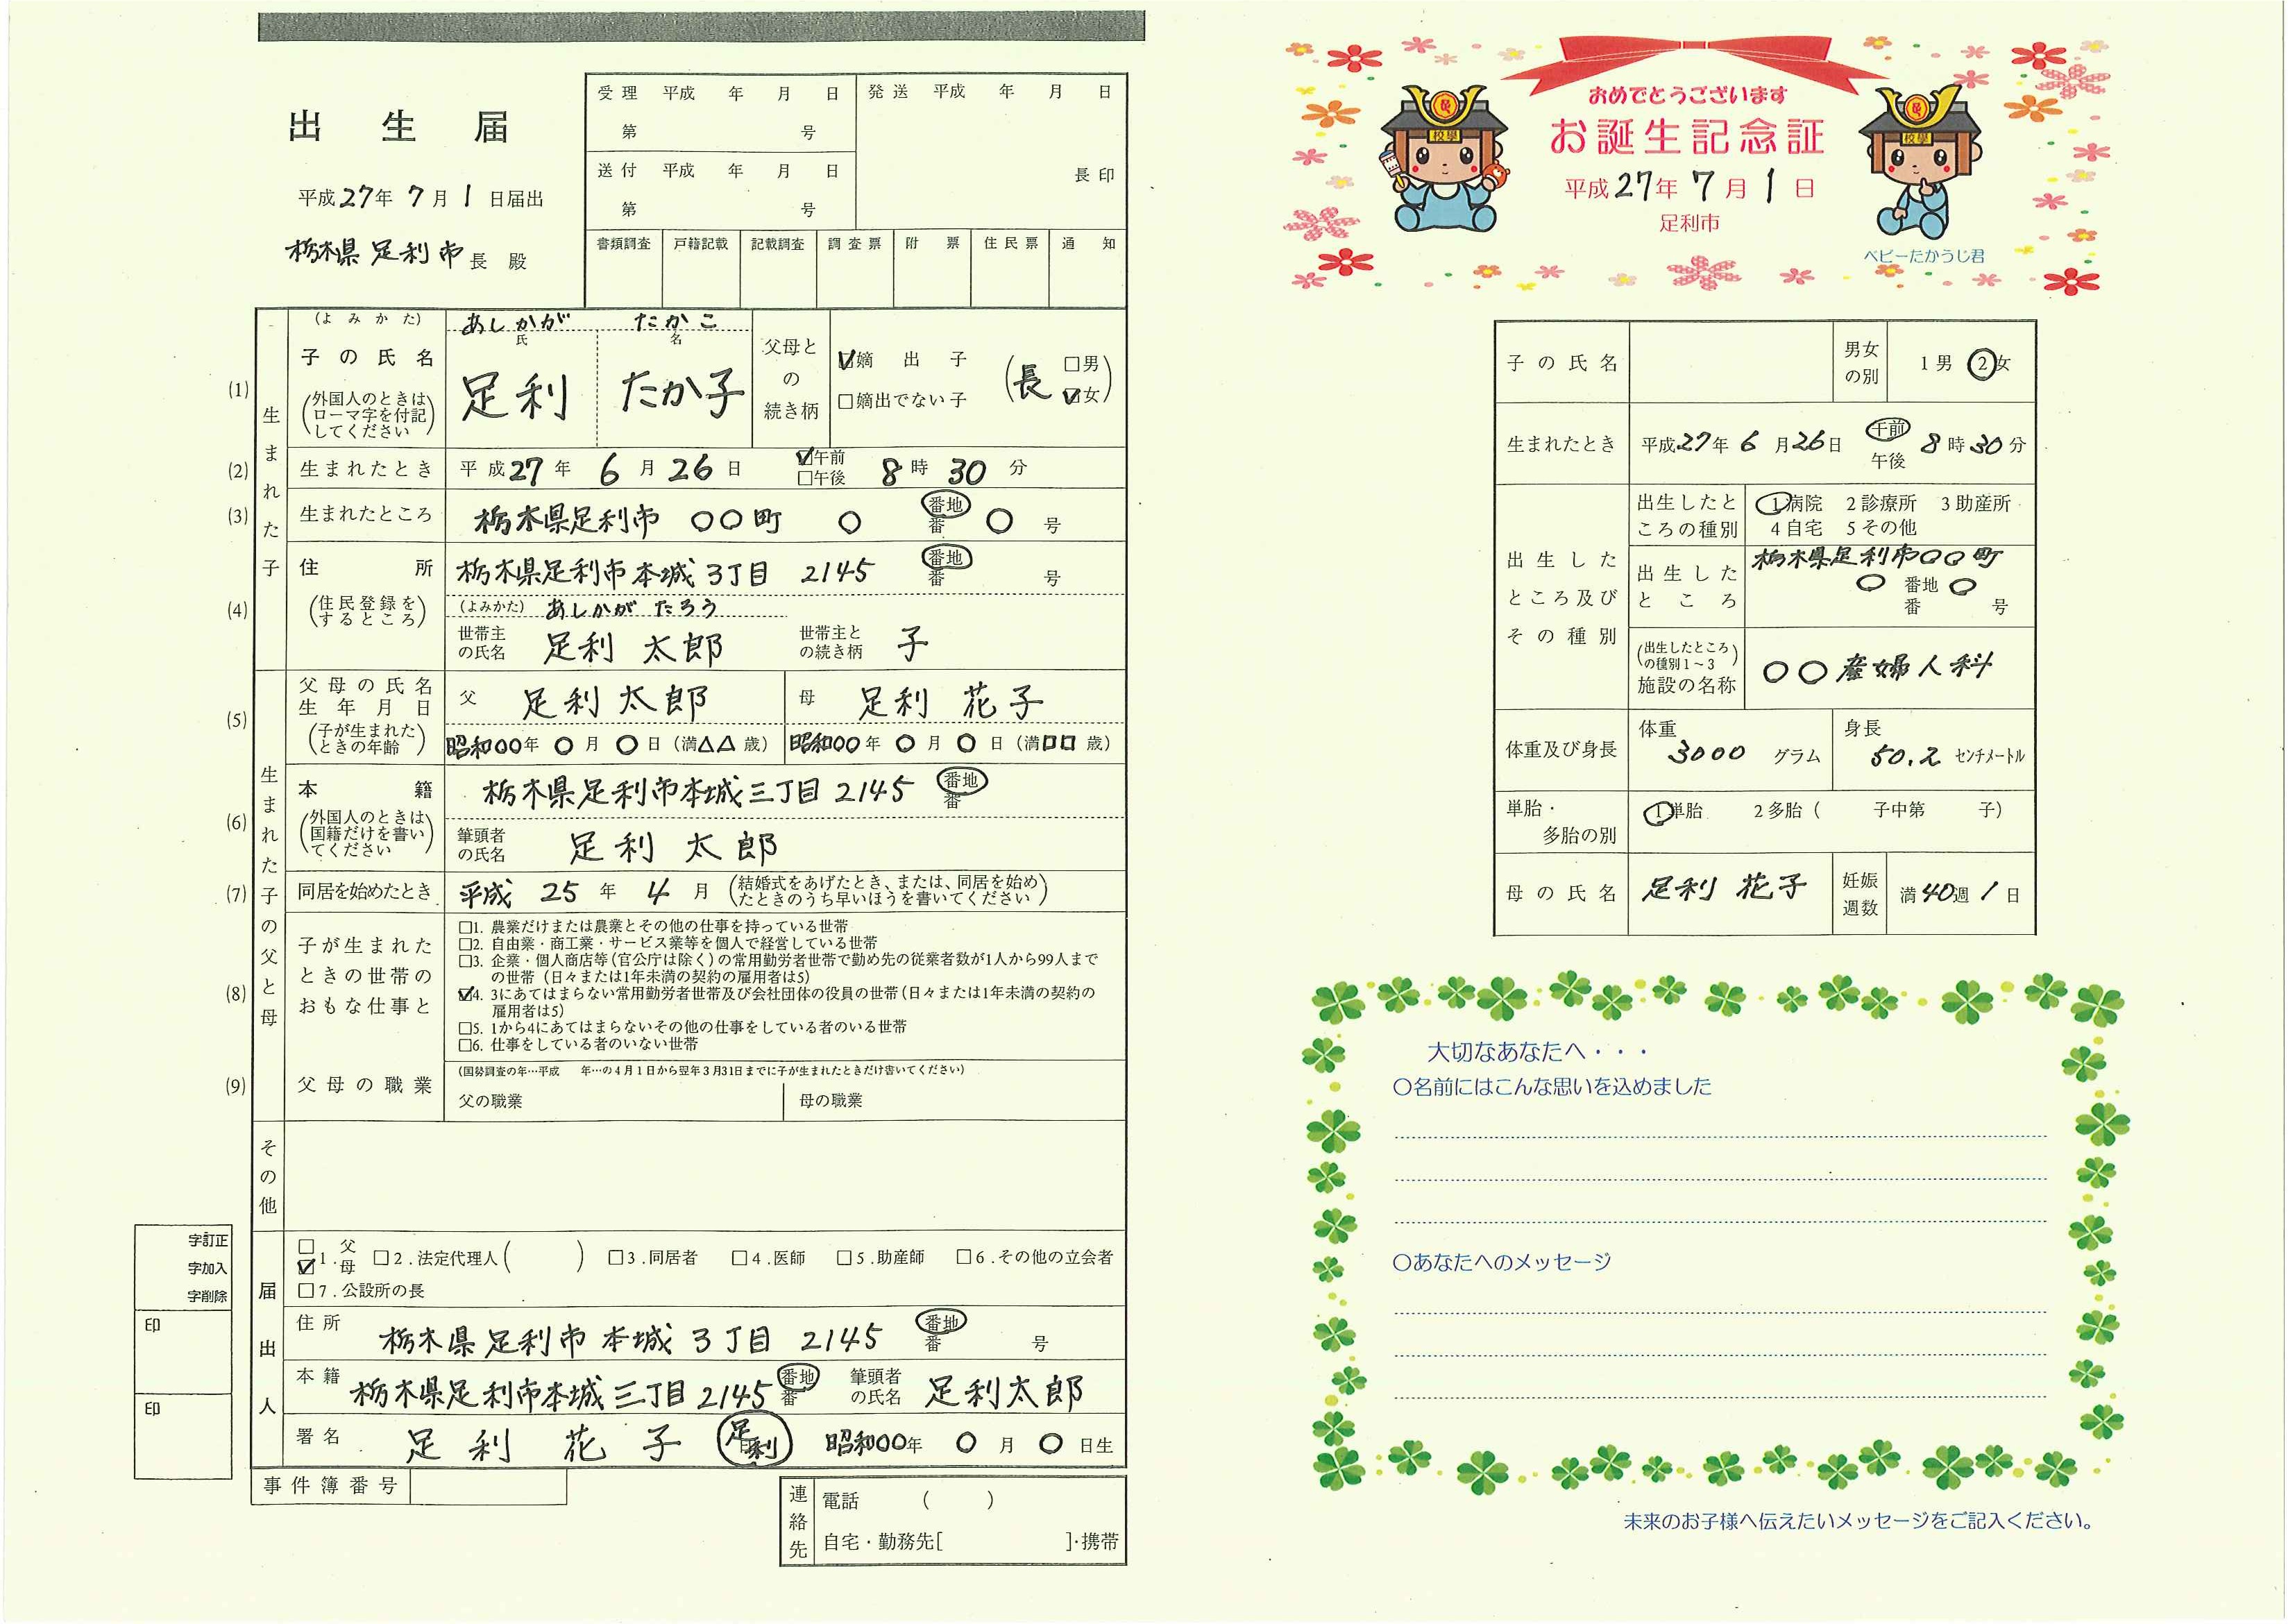 出生届
平成27年7月1日届出
栃木県足利市長 殿
受理 平成 年 月 日
第 号
送付 平成 年 月 日
第 号
発送 平成 年 月 日
長印
書類調査 戸籍記載 記載調査 調査票 附票 住民票 通知
生まれた子
(1)
(よみかた) あしかが たかこ
子の氏名 氏 名
(外国人のときはローマ字を付記してください)
足利 たか子
父母との続き柄
☑嫡出子
□嫡出でない子
(長 □男 ☑女)
(2) 生まれたとき 平成27年6月26日 ☑午前 □午後 8時30分
(3) 生まれたところ 栃木県足利市 〇〇町 〇 番地 番 〇 号
(4) 住所 栃木県足利市本城3丁目 2145 番地 番 号
(住民登録をするところ)
(よみかた) あしかが たろう
世帯主の氏名 足利 太郎 世帯主との続き柄 子
生まれた子の父と母
(5) 父母の氏名 生年月日
(子が生まれたときの年齢)
父 足利太郎 母 足利 花子
昭和〇〇年〇月〇日(満△△歳) 昭和〇〇年〇月〇日(満□□歳)
(6) 本籍 栃木県足利市本城三丁目2145 番地 番
(外国人のときは国籍だけを書いてください)
筆頭者の氏名 足利 太郎
(7) 同居を始めたとき 平成 25年 4月 (結婚式をあげたとき、または、同居を始めたときのうち早いほうを書いてください)
(8) 子が生まれたときの世帯のおもな仕事と
□1. 農業だけまたは農業とその他の仕事を持っている世帯
□2. 自由業・商工業・サービス業等を個人で経営している世帯
□3. 企業・個人商店等(官公庁は除く)の常用勤労者世帯で勤め先の従業者数が1人から99人まで
の世帯(日々または1年未満の契約の雇用者は5)
☑4. 3にあてはまらない常用勤労者世帯及び会社団体の役員の世帯(日々または1年未満の契約の
雇用者は5)
□5. 1から4にあてはまらないその他の仕事をしている者のいる世帯
□6. 仕事をしている者のいない世帯
(9) 父母の職業
(国勢調査の年…平成 年…の4月1日から翌年3月31日までに子が生まれたときだけ書いてください)
父の職業 母の職業
その他
字訂正
字加入
字削除
印
印
届出人
□1.父 ☑母 □2.法定代理人( ) □3.同居者 □4.医師 □5.助産師 □6.その他の立会者
□7.公設所の長
住所 栃木県足利市本城3丁目 2145 番地 番 号
本籍 栃木県足利市本城三丁目2145 番地 番 筆頭者の氏名 足利太郎
署名 足利 花子 足利 印 昭和〇〇年〇月〇日生
事件簿番号
連絡先
電話 ( )
自宅・勤務先[ ]・携帯
おめでとうございます
お誕生記念証
平成27年7月1日
足利市
學校
學校
ベビーたかうじ君
子の氏名 男女の別 1男 2女
生まれたとき 平成27年6月26日 午前 午後 8時30分
出生したところ及びその種別
出生したところの種別 1病院 2診療所 3助産所
4自宅 5その他
出生したところ 栃木県足利市〇〇町
〇 番地 番 〇 号
(出生したところの種別1~3) 施設の名称 〇〇産婦人科
体重及び身長 体重 3000 グラム 身長 50.2 センチメートル
単胎・多胎の別 1単胎 2多胎( 子中第 子)
母の氏名 足利 花子 妊娠週数 満40週1日
大切なあなたへ・・・
〇名前にはこんな思いを込めました
〇あなたへのメッセージ
未来のお子様へ伝えたいメッセージをご記入ください。